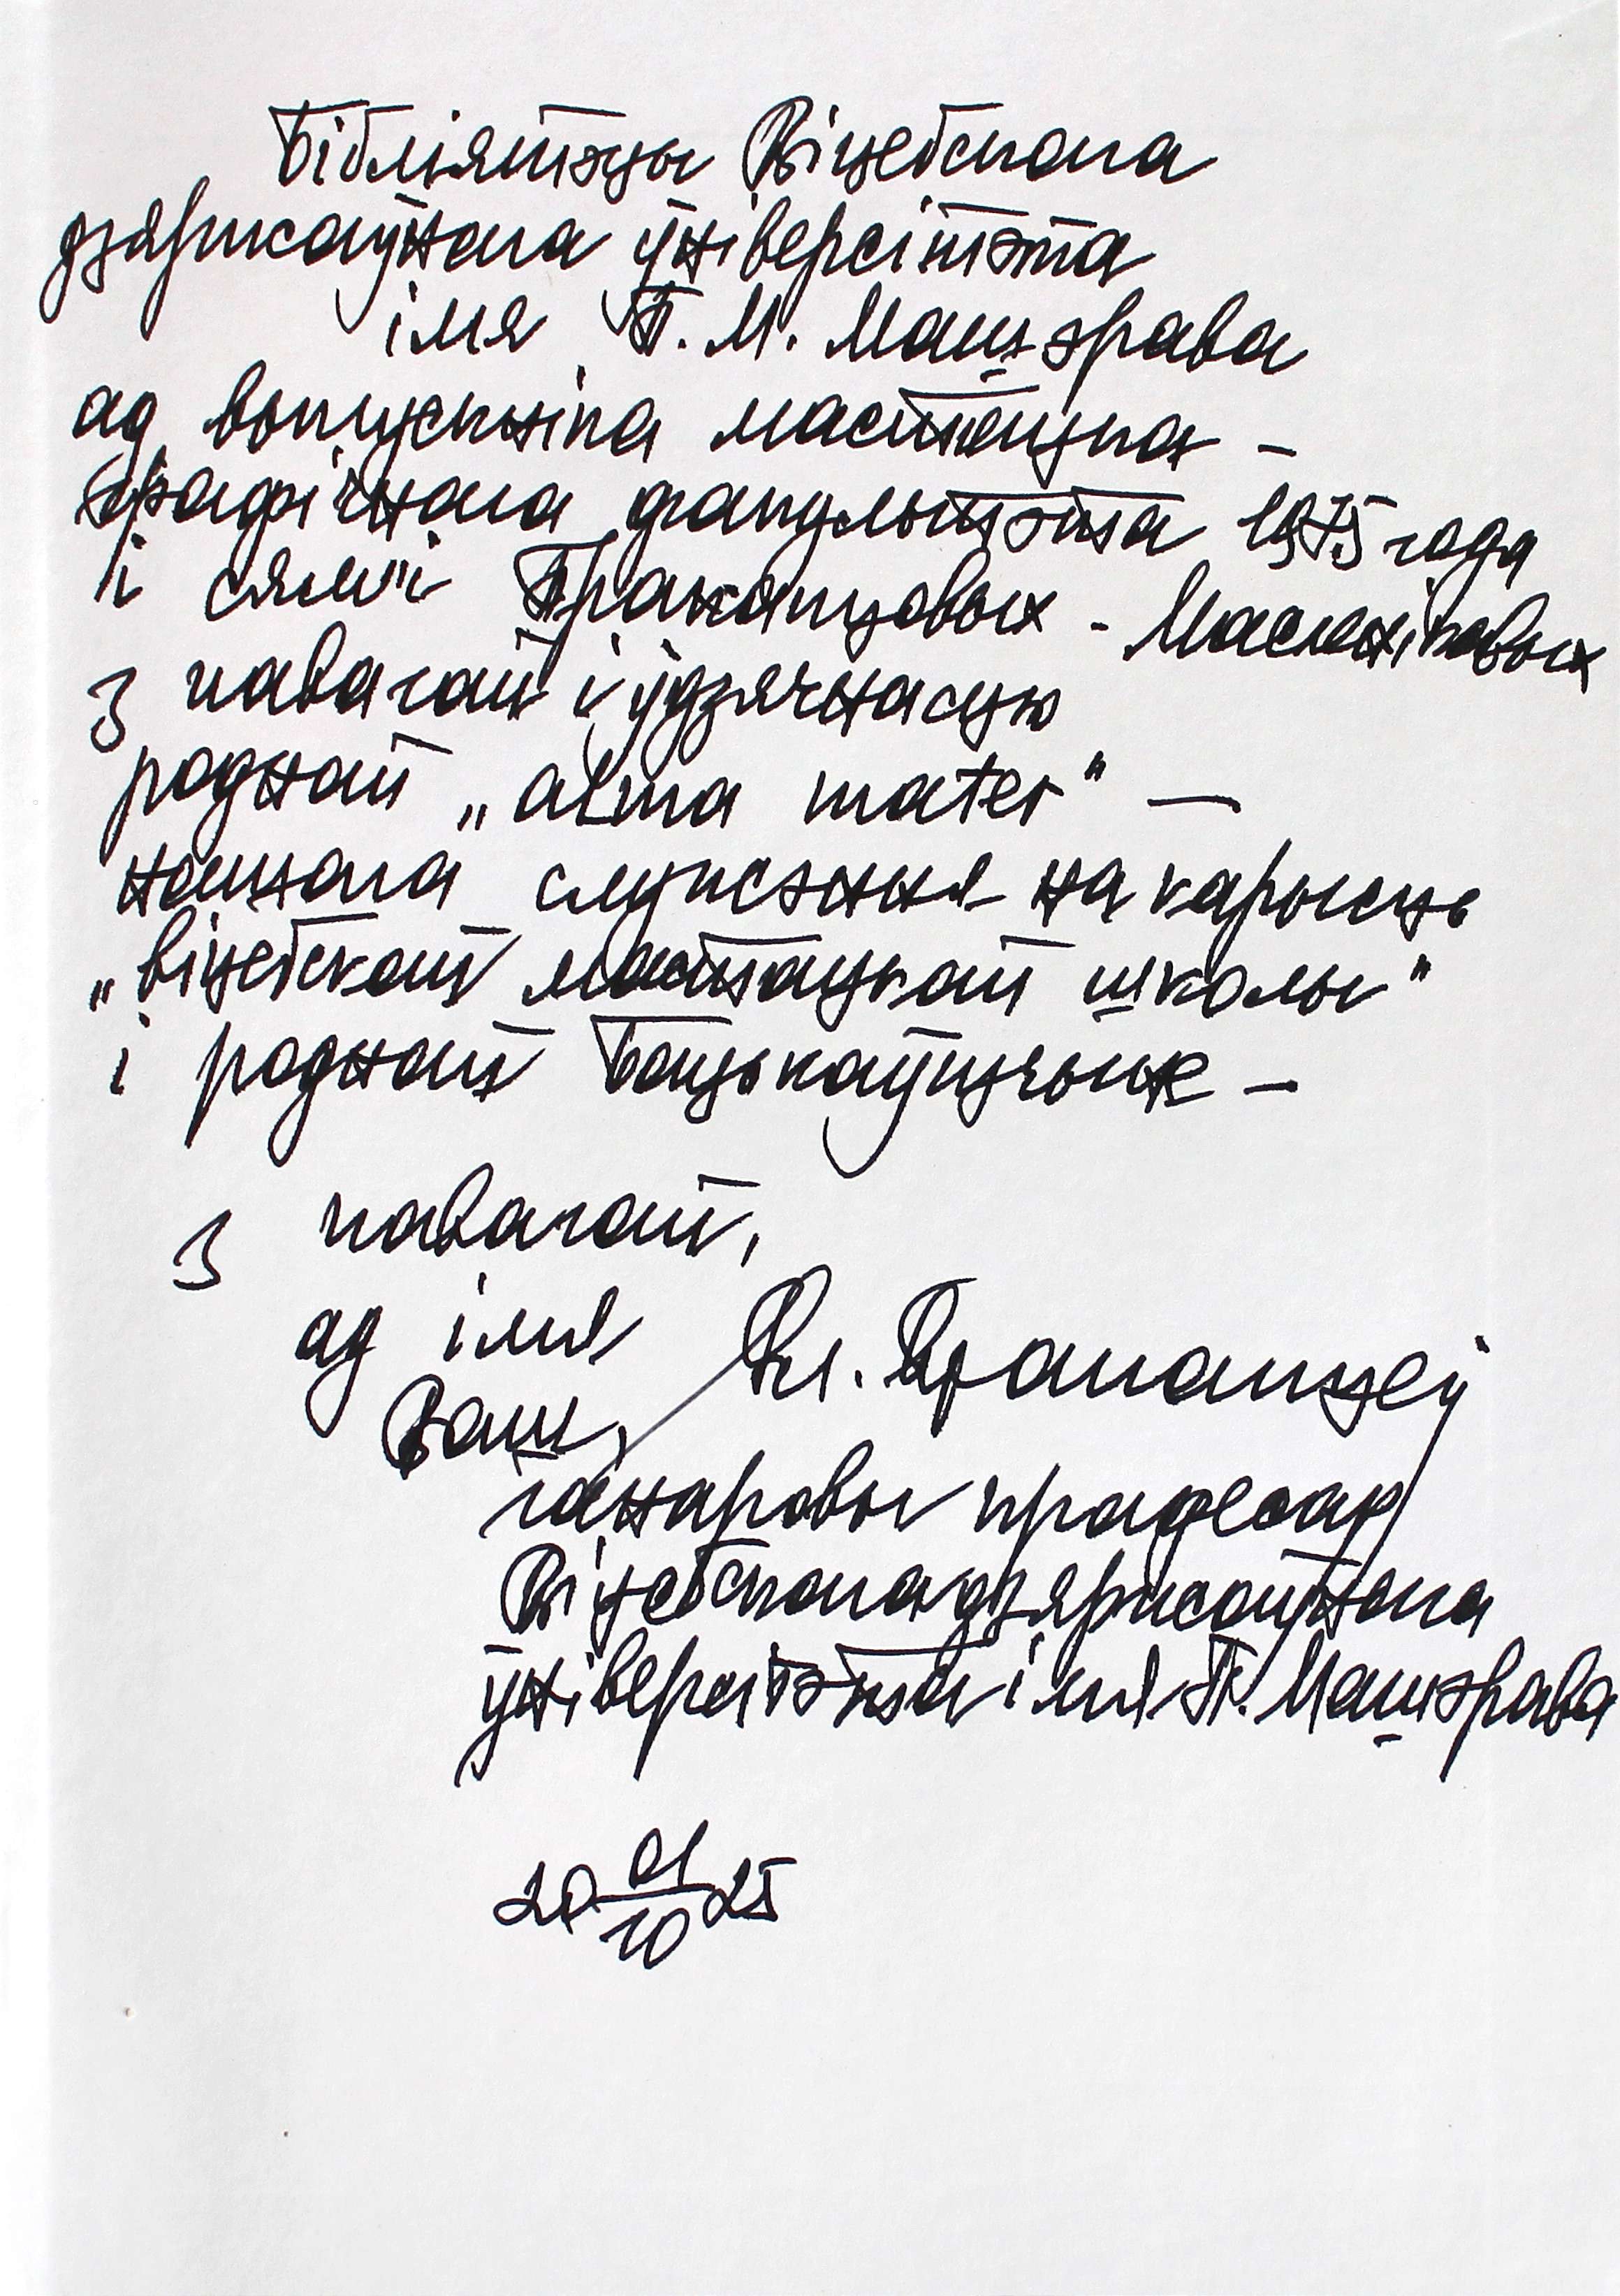 Бібліятэцы Віцебскага
дзяржаўнага ўніверсітэта
імя П. М. Машэрава
ад выпускніка мастацка-
графічнага факультэта 1975 года
і сям'і Пракапцовых - Масленікавых
з павагай і ўдзячнасцю
роднай „alma mater" —
нашага служэння на карысць
„віцебскай мастацкай школы"
і роднай Бацькаўшчыне —
З павагай,
ад імя Вл. Пракапцоў
Ваш,
ганаровы прафесар
Віцебскага дзяржаўнага
ўніверсітэта імя П. Машэрава
20 01/10 25